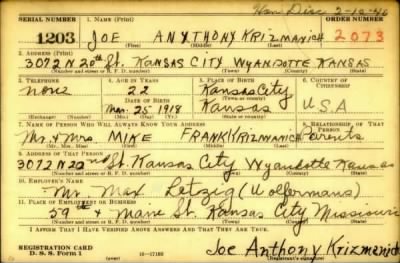 Hon Disc 2-10-46
SERIAL NUMBER 1. NAME (Print) ORDER NUMBER
1203 JOE ANYTHONY KRIZMANICH 2073
(First) (Middle) (Last)
2. ADDRESS (Print)
3072 N 20th St. KANSAS CITY WYANDOTTE KANSAS
(Number and street or R. F. D. number) (Town) (County) (State)
3. TELEPHONE 4. AGE IN YEARS 5. PLACE OF BIRTH 6. COUNTRY OF CITIZENSHIP
none 22 Kansas City
DATE OF BIRTH (Town or county) U.S.A
Mar. 25 1918 Kansas
(Exchange) (Number) (Mo.) (Day) (Yr.) (State or country)
7. NAME OF PERSON WHO WILL ALWAYS KNOW YOUR ADDRESS 8. RELATIONSHIP OF THAT PERSON
Mr. & Mrs MIKE FRANK KRIZMANICH Parents
(Mr., Mrs., Miss) (First) (Middle) (Last)
9. ADDRESS OF THAT PERSON
3072 N 22nd St. Kansas City Wyandotte Kansas
(Number and street or R. F. D. number) (Town) (County) (State)
10. EMPLOYER'S NAME
Mr. Max Letzig (Wolfermans)
11. PLACE OF EMPLOYMENT OR BUSINESS
59th & Maine St. Kansas City Missouri
(Number and street or R. F. D. number) (Town) (County) (State)
I AFFIRM THAT I HAVE VERIFIED ABOVE ANSWERS AND THAT THEY ARE TRUE.
REGISTRATION CARD
D. S. S. FORM 1 16-17105 Joe Anthony Krizmanich
(Registrant's signature)